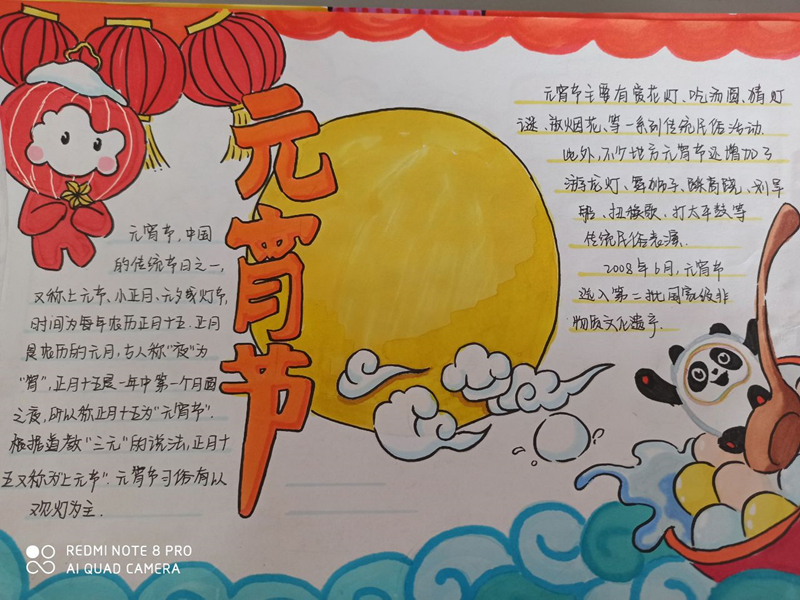 元宵节
元宵节,中国
的传统节日之一,
又称上元节、小正月、元夕或灯节,
时间为每年农历正月十五.正月
是农历的元月,古人称"夜"为
"宵",正月十五是一年中第一个月圆
之夜,所以称正月十五为"元宵节".
根据道教"三元"的说法,正月十
五又称为"上元节".元宵节习俗有以
观灯为主.
元宵节主要有赏花灯、吃汤圆、猜灯
谜、放烟花、等一系列传统民俗活动.
此外,不少地方元宵节还增加了
游龙灯、舞狮子、踩高跷、划旱
船、扭秧歌、打太平鼓等
传统民俗表演.
2008年6月,元宵节
选入第二批国家级非
物质文化遗产.
REDMI NOTE 8 PRO
AI QUAD CAMERA